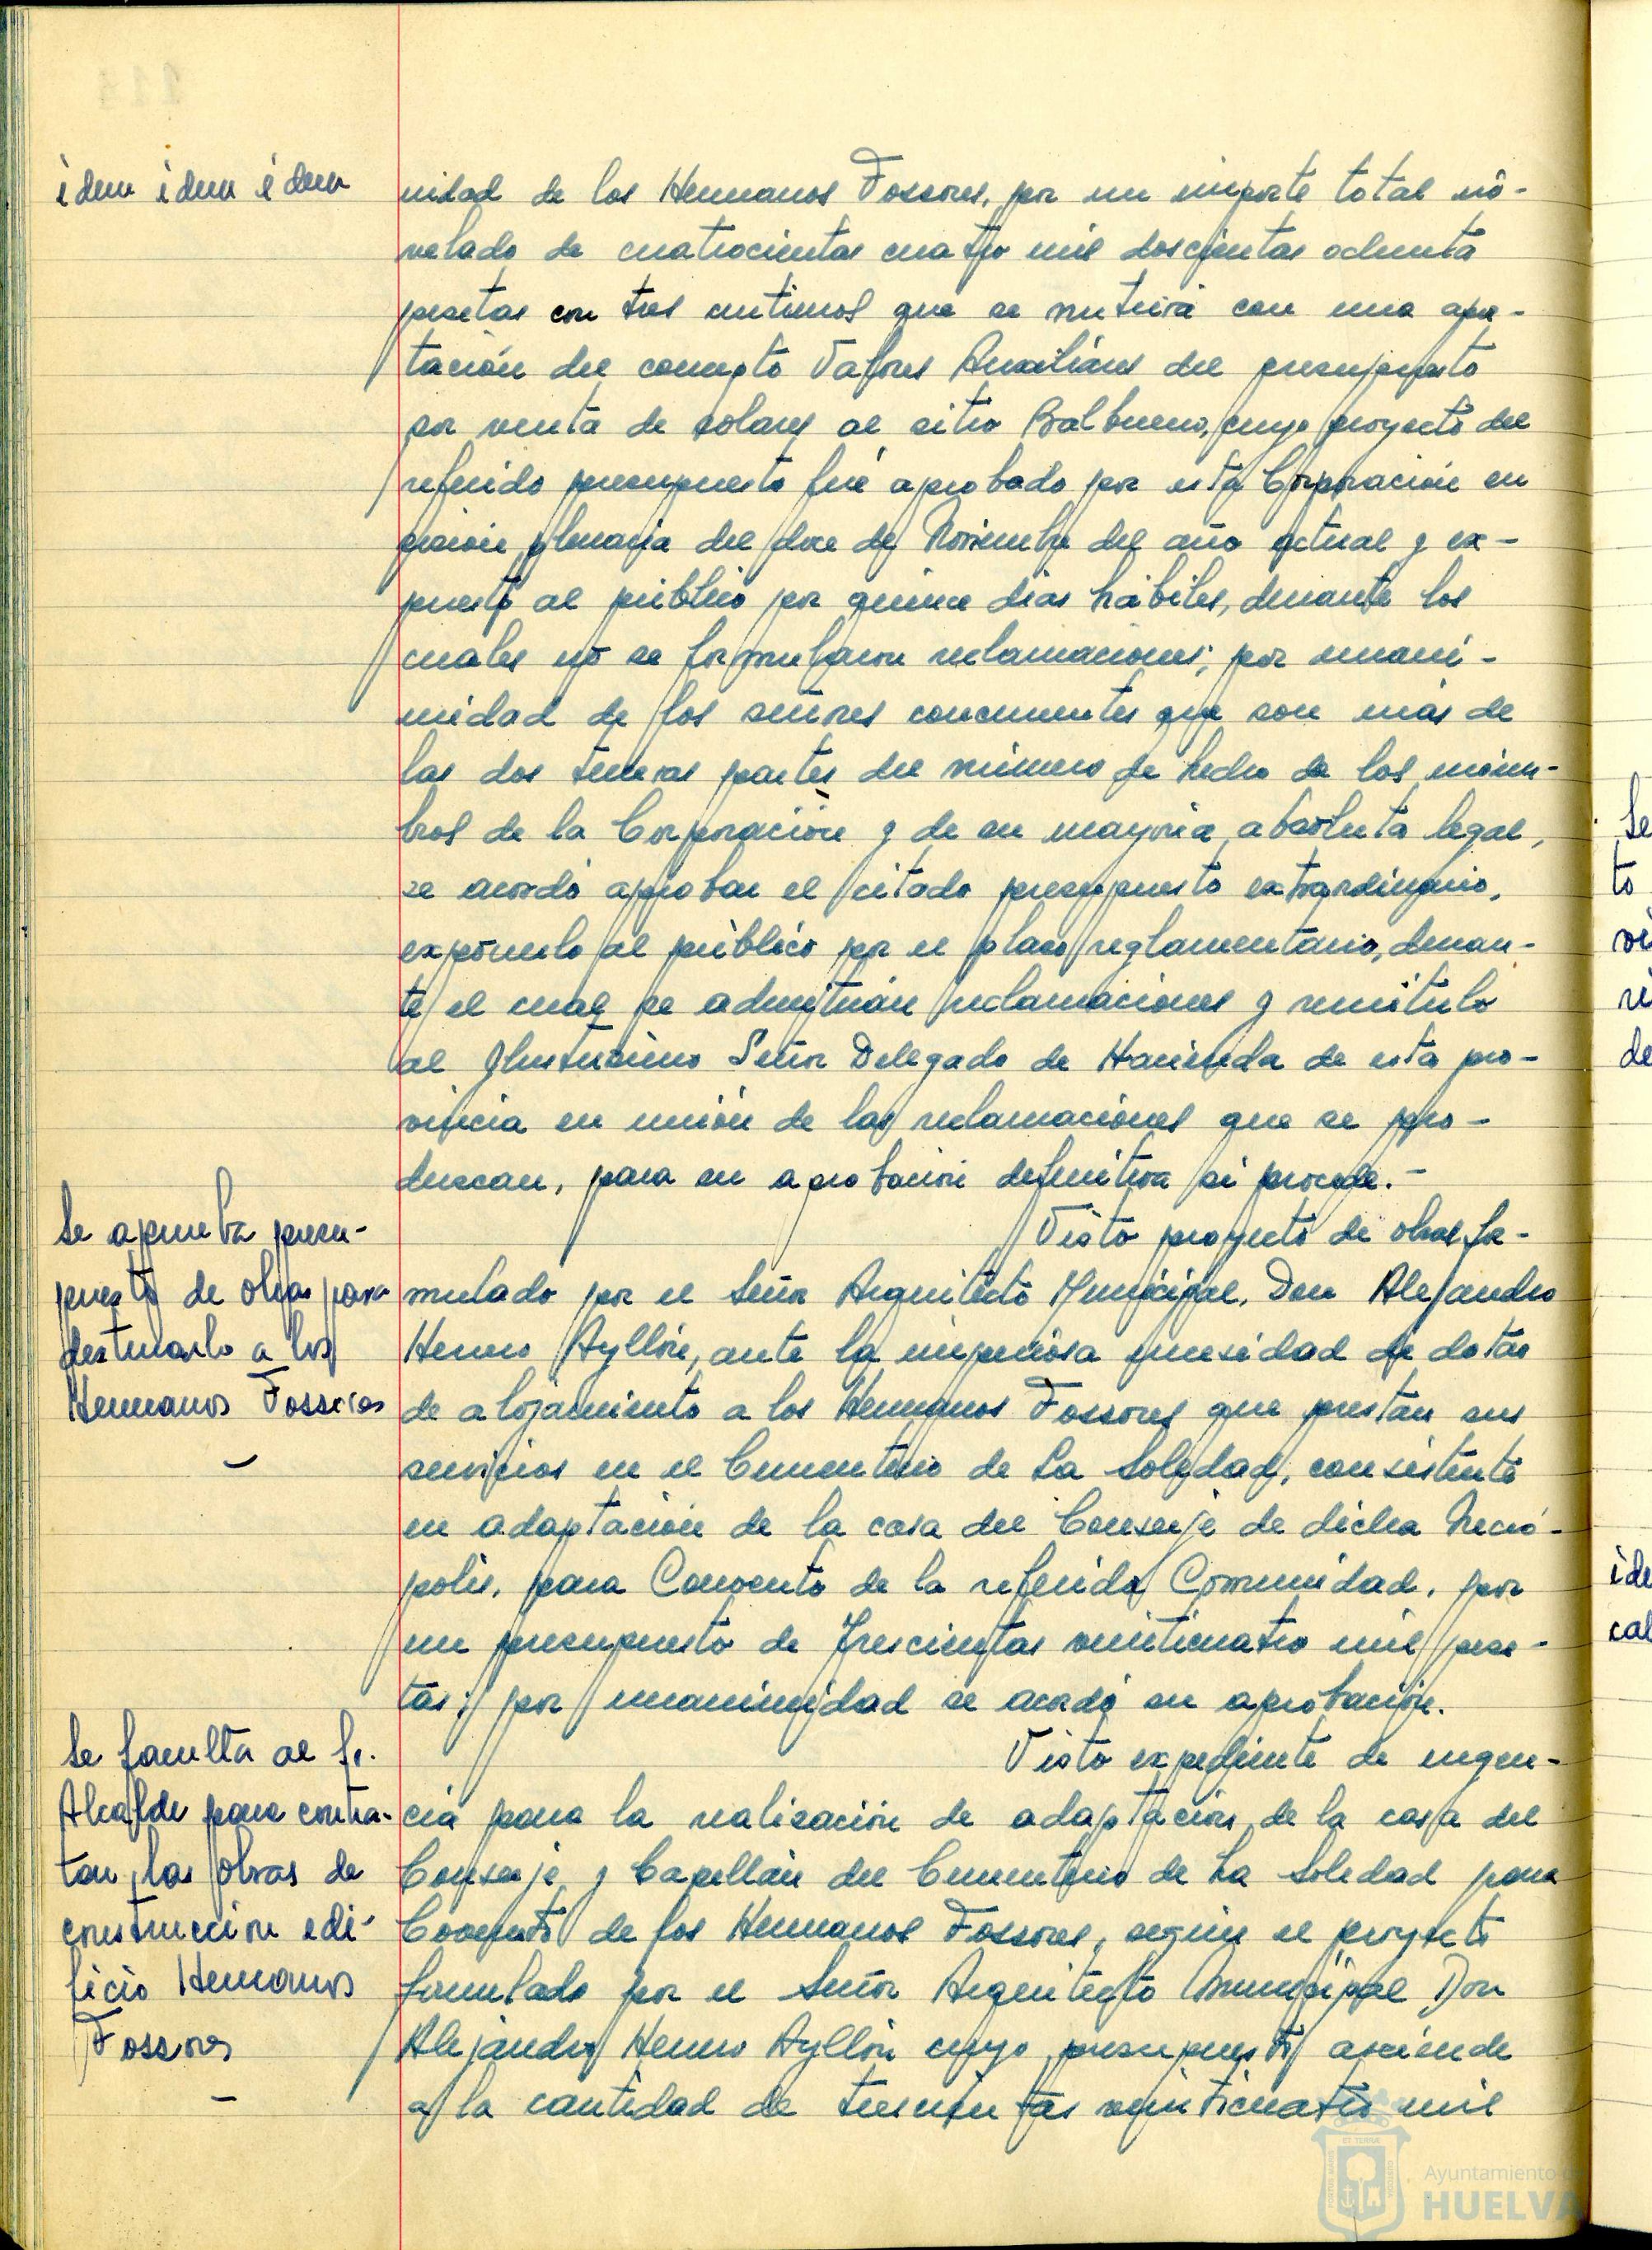 idem idem idem
nidad de los Hermanos Fossores, por un importe total ni-
velado de cuatrocientas cuatro mil doscientas ochenta
pesetas con tres centimos que se nutrirá con una apor-
tación del concepto Valores Auxiliares del presupuesto
por venta de solares al sitio Balbueno, cuyo proyecto del
referido presupuesto fué aprobado por esta Corporación en
sesión plenaria del doce de Noviembre del año actual y ex-
puesto al público por quince dias hábiles, durante los
cuales no se formularon reclamaciones; por unani-
midad de los señores concurrentes que son más de
las dos terceras partes del número de hecho de los miem-
bros de la Corporación y de su mayoria absoluta legal,
se acordó aprobar el citado presupuesto extraordinario,
exponerlo al público por el plazo reglamentario, duran-
te el cual se admitirán reclamaciones y remitirlo
al Ilustrisimo Señor Delegado de Hacienda de esta pro-
vincia en unión de las reclamaciones que se pro-
duzcan, para su aprobación definitiva si procede.-
Se aprueba presu-
puesto de obras para
destinarlo a los
Hermanos Fossores
-
Visto proyecto de obras for-
mulado por el Señor Arquitecto Municipal, Don Alejandro
Herrero Ayllón, ante la imperiosa necesidad de dotar
de alojamiento a los Hermanos Fossores que prestan sus
servicios en el Cementerio de La Soledad, consistente
en adaptación de la casa del Conserje de dicha Necró-
polis, para Convento de la referida Comunidad, por
un presupuesto de Trescientas veinticuatro mil pese-
tas; por unanimidad se acordó su aprobación.
Se faculta al Sr.
Alcalde para contra-
tar las obras de
construccion edi-
ficio Hermanos
Fossores
-
Visto expediente de urgen-
cia para la realización de adaptación de la casa del
Conserje y Capellán del Cementerio de La Soledad para
Convento de los Hermanos Fossores, según el proyecto
formulado por el Señor Arquitecto Municipal Don
Alejandro Herrero Ayllón cuyo presupuesto asciende
a la cantidad de trescientas veinticuatro mil
Ayuntamiento de
HUELVA